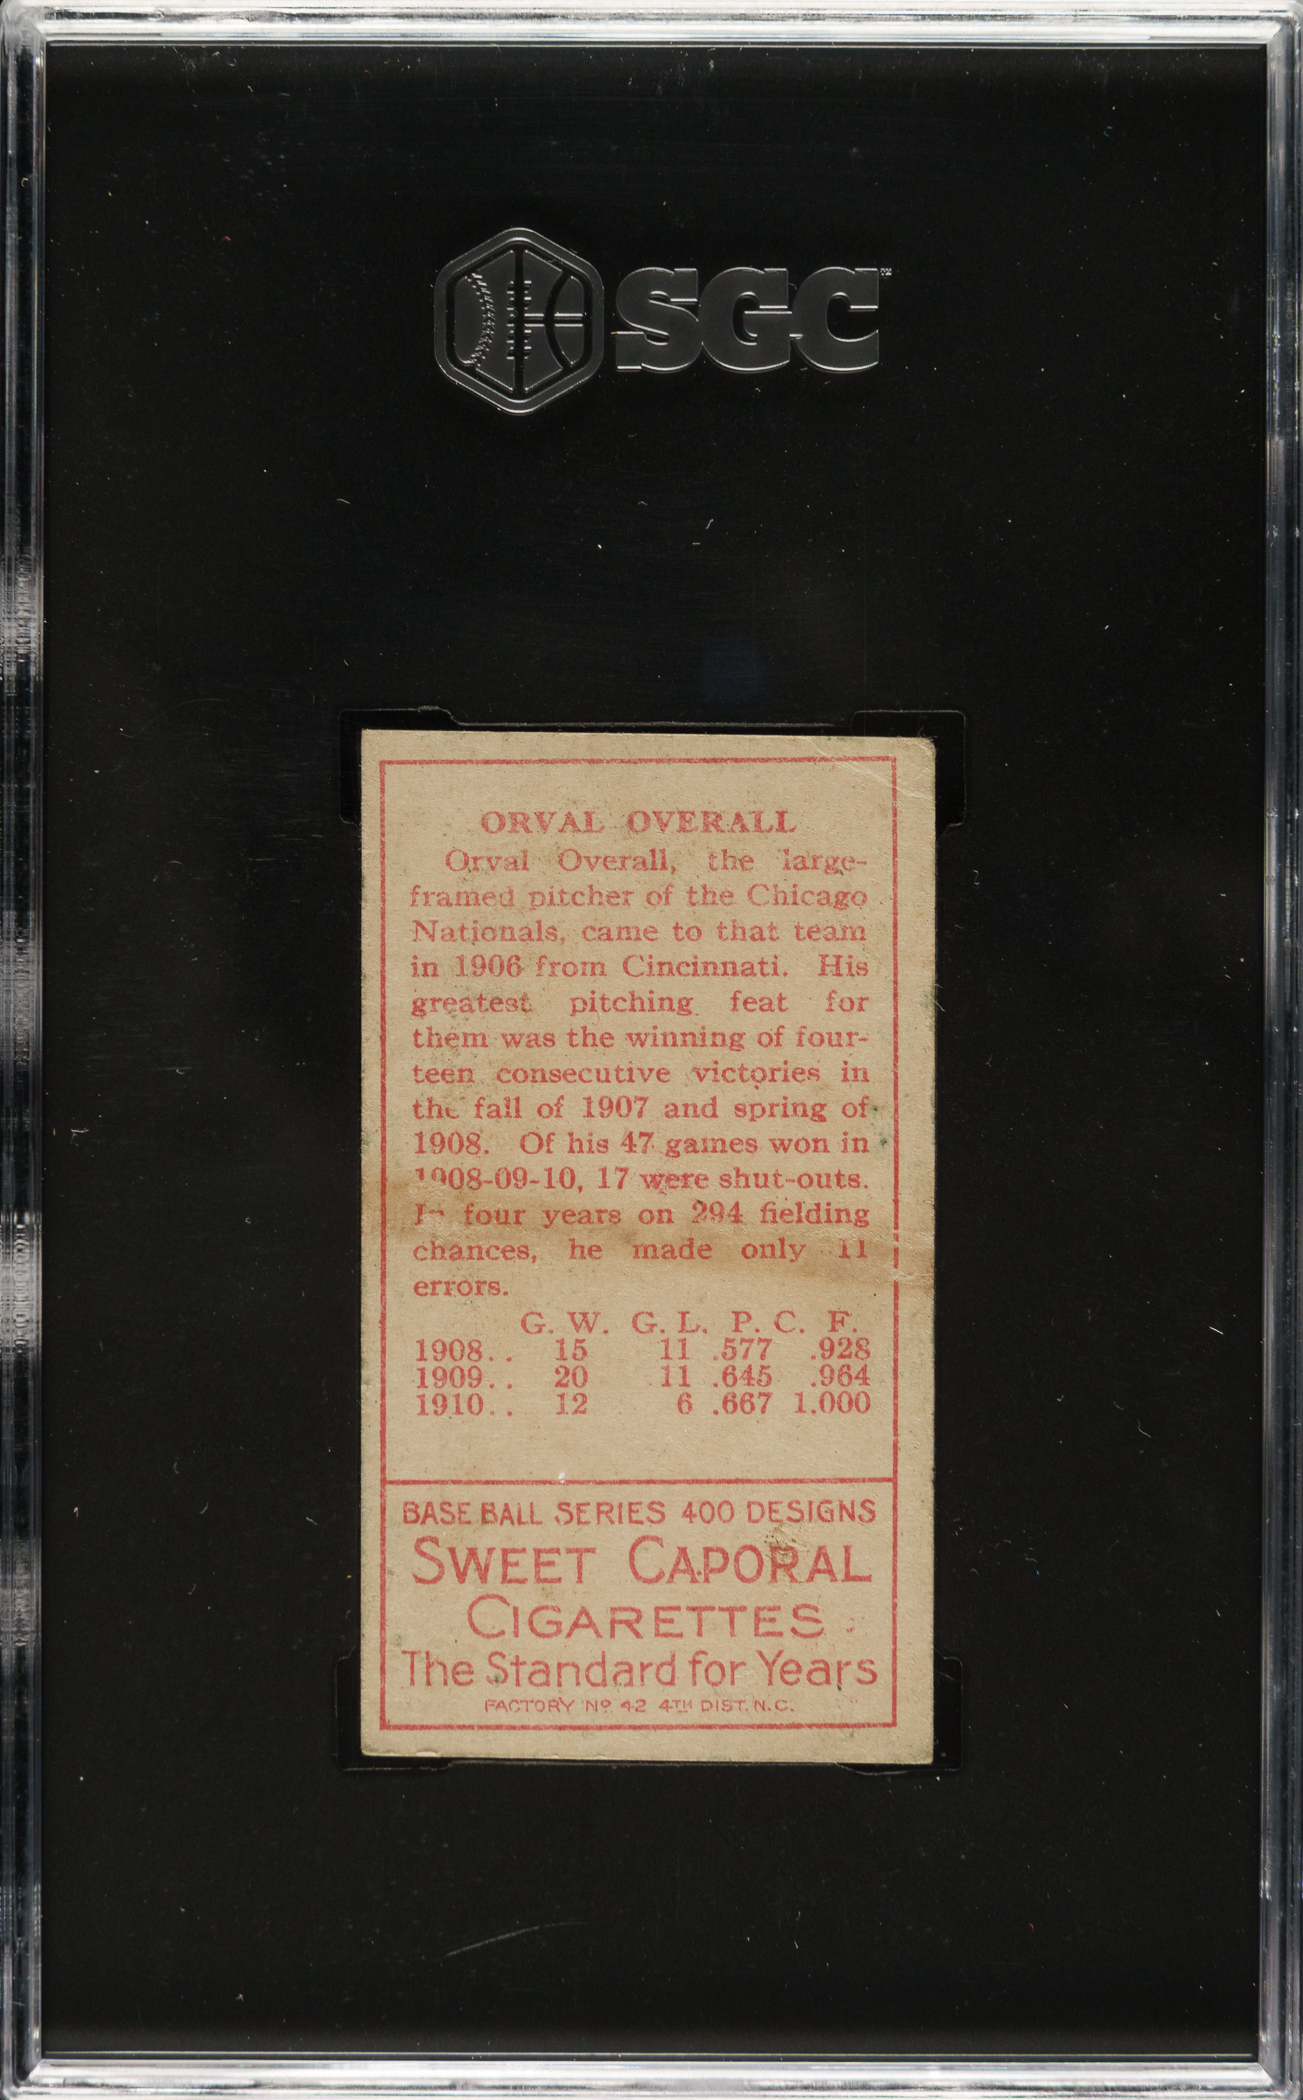 SGC™
ORVAL OVERALL
Orval Overall, the large-
framed pitcher of the Chicago
Nationals, came to that team
in 1906 from Cincinnati. His
greatest pitching feat for
them was the winning of four-
teen consecutive victories in
the fall of 1907 and spring of
1908. Of his 47 games won in
1908-09-10, 17 were shut-outs.
In four years on 294 fielding
chances, he made only 11
errors.
G. W. G. L. P. C. F.
1908.. 15 11 .577 .928
1909.. 20 11 .645 .964
1910.. 12 6 .667 1.000
BASE BALL SERIES 400 DESIGNS
SWEET CAPORAL
CIGARETTES
The Standard for Years
FACTORY Nº 42 4TH DIST. N.C.